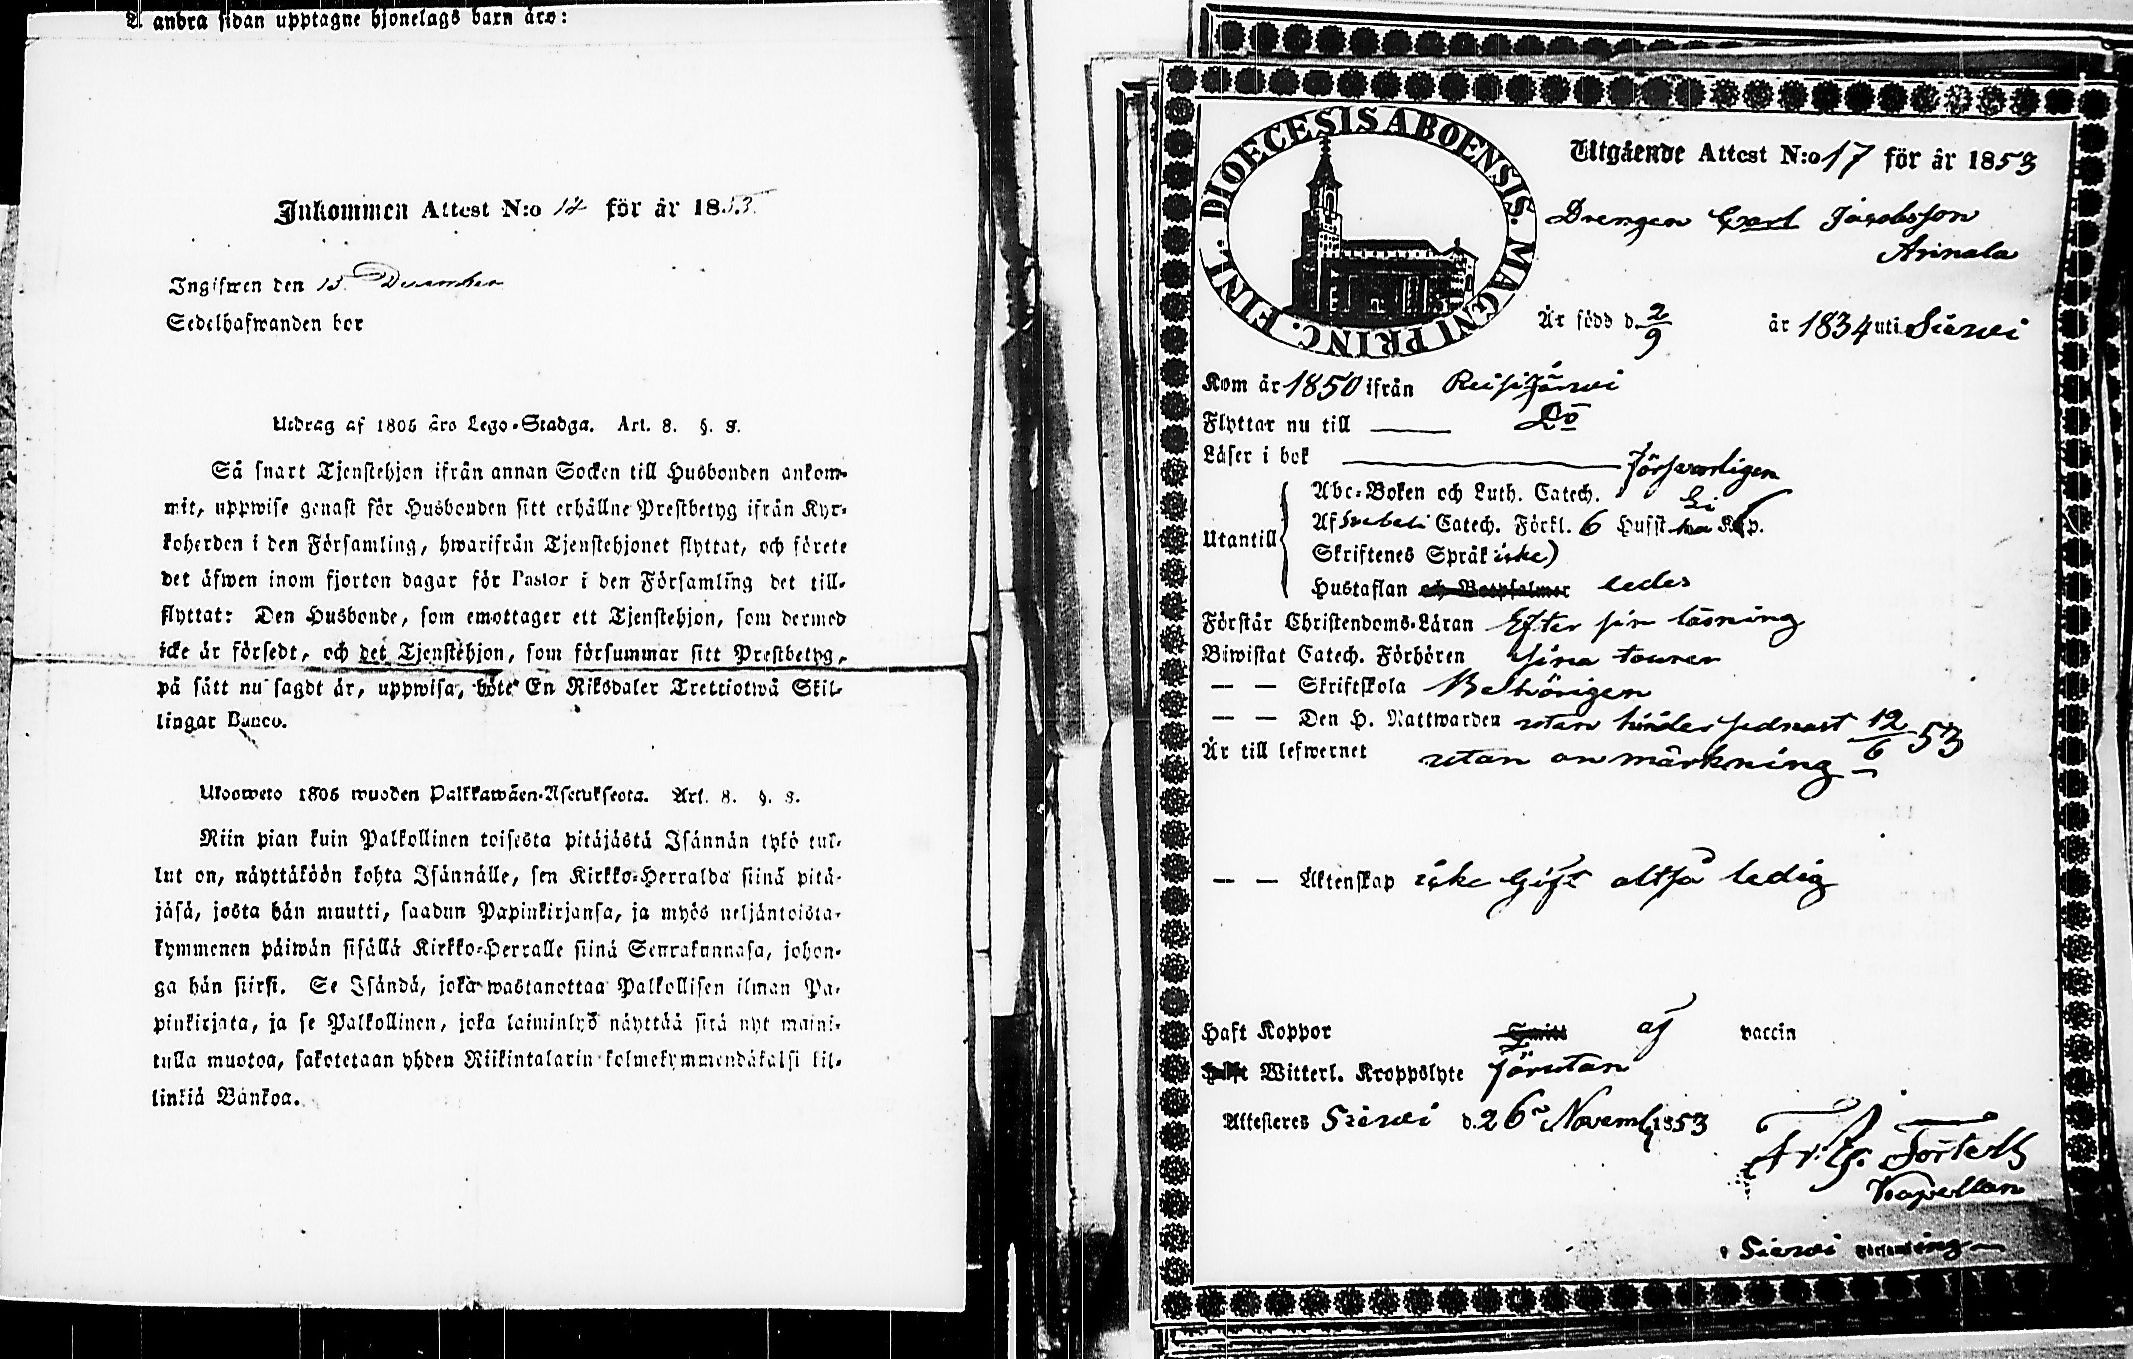 På andra sidan upptagne hjonelags barn äro:
Inkommen Attest N:o 12 för år 1853.
Ingifwen den 15 December
Sedelhafwanden bor
Utdrag af 1805 års Lego-Stadga. Art. 8. §. 8.
Så snart Tjenstehjon ifrån annan Socken till Husbonden ankom-
mit, uppwise genast för Husbonden sitt erhållne Prestbetyg ifrån Kyr-
koherden i den Församling, hwarifrån Tjenstehjonet flyttat, och förete
det äfwen inom fjorton dagar för Pastor i den Församling det till-
flyttat: Den Husbonde, som emottager ett Tjenstehjon, som dermed
icke är försedt, och det Tjenstehjon, som försummar sitt Prestbetyg,
på sätt nu sagdt är, uppwisa, böte En Riksdaler Trettiotwå Skil-
lingar Banco.
Ulosweto 1805 wuoden Palkkawäen-Asetuksesta. Art. 8. §. 8.
Niin pian kuin Palkollinen toisesta pitäjästä Isännän tykö tul-
lut on, näyttäköön kohta Isännälle, sen Kirkko-Herralda siinä pitä-
jäsä, josta hän muutti, saadun Papinkirjansa, ja myös neljäntoista-
kymmenen päiwän sisällä Kirkko-Herralle siinä Seurakunnasa, johon-
ga hän siirsi. Se Isändä, joka wastanottaa Palkollisen ilman Pa-
pinkirjata, ja se Palkollinen, joka laiminlyö näyttää sitä nyt maini-
tulla muotoa, sakotetaan yhden Riikintalarin kolmekymmendäkaksi kil-
linkiä Bankoa.
DIOECESIS ABOENSIS. MAGNI PRINC. FINL.
Utgående Attest N:o 17 för år 1853
Drengen Carl Jacobsson
Arinala
Är född d. 2/9 år 1834 uti Sievi
Kom år 1850 ifrån Reisijärvi
Flyttar nu till Do
Läser i bok Försvarligen
Abc-Boken och Luth. Catech.
Utantill Af Svebeli Catech. Förkl. 6 Hufst Kap.
Skriftenes Språk icke)
Hustaflan och Botpsalmer ledes
Förstår Christendoms-Läran Efter sin läsning
Biwistat Catech. Förhören sina tourer
— — Skriftskola Behörigen
— — Den H. Nattwarden utan hinder sednast 12/6 53
Är till lefwernet utan anmärkning
— — Äktenskap icke Gift altså ledig
Haft Koppor af vaccin
Haft Witterl. Kroppslyte förutan
Attesteras Sievi d. 26 Novemb 1853
Kapellan
i Sievi Församling